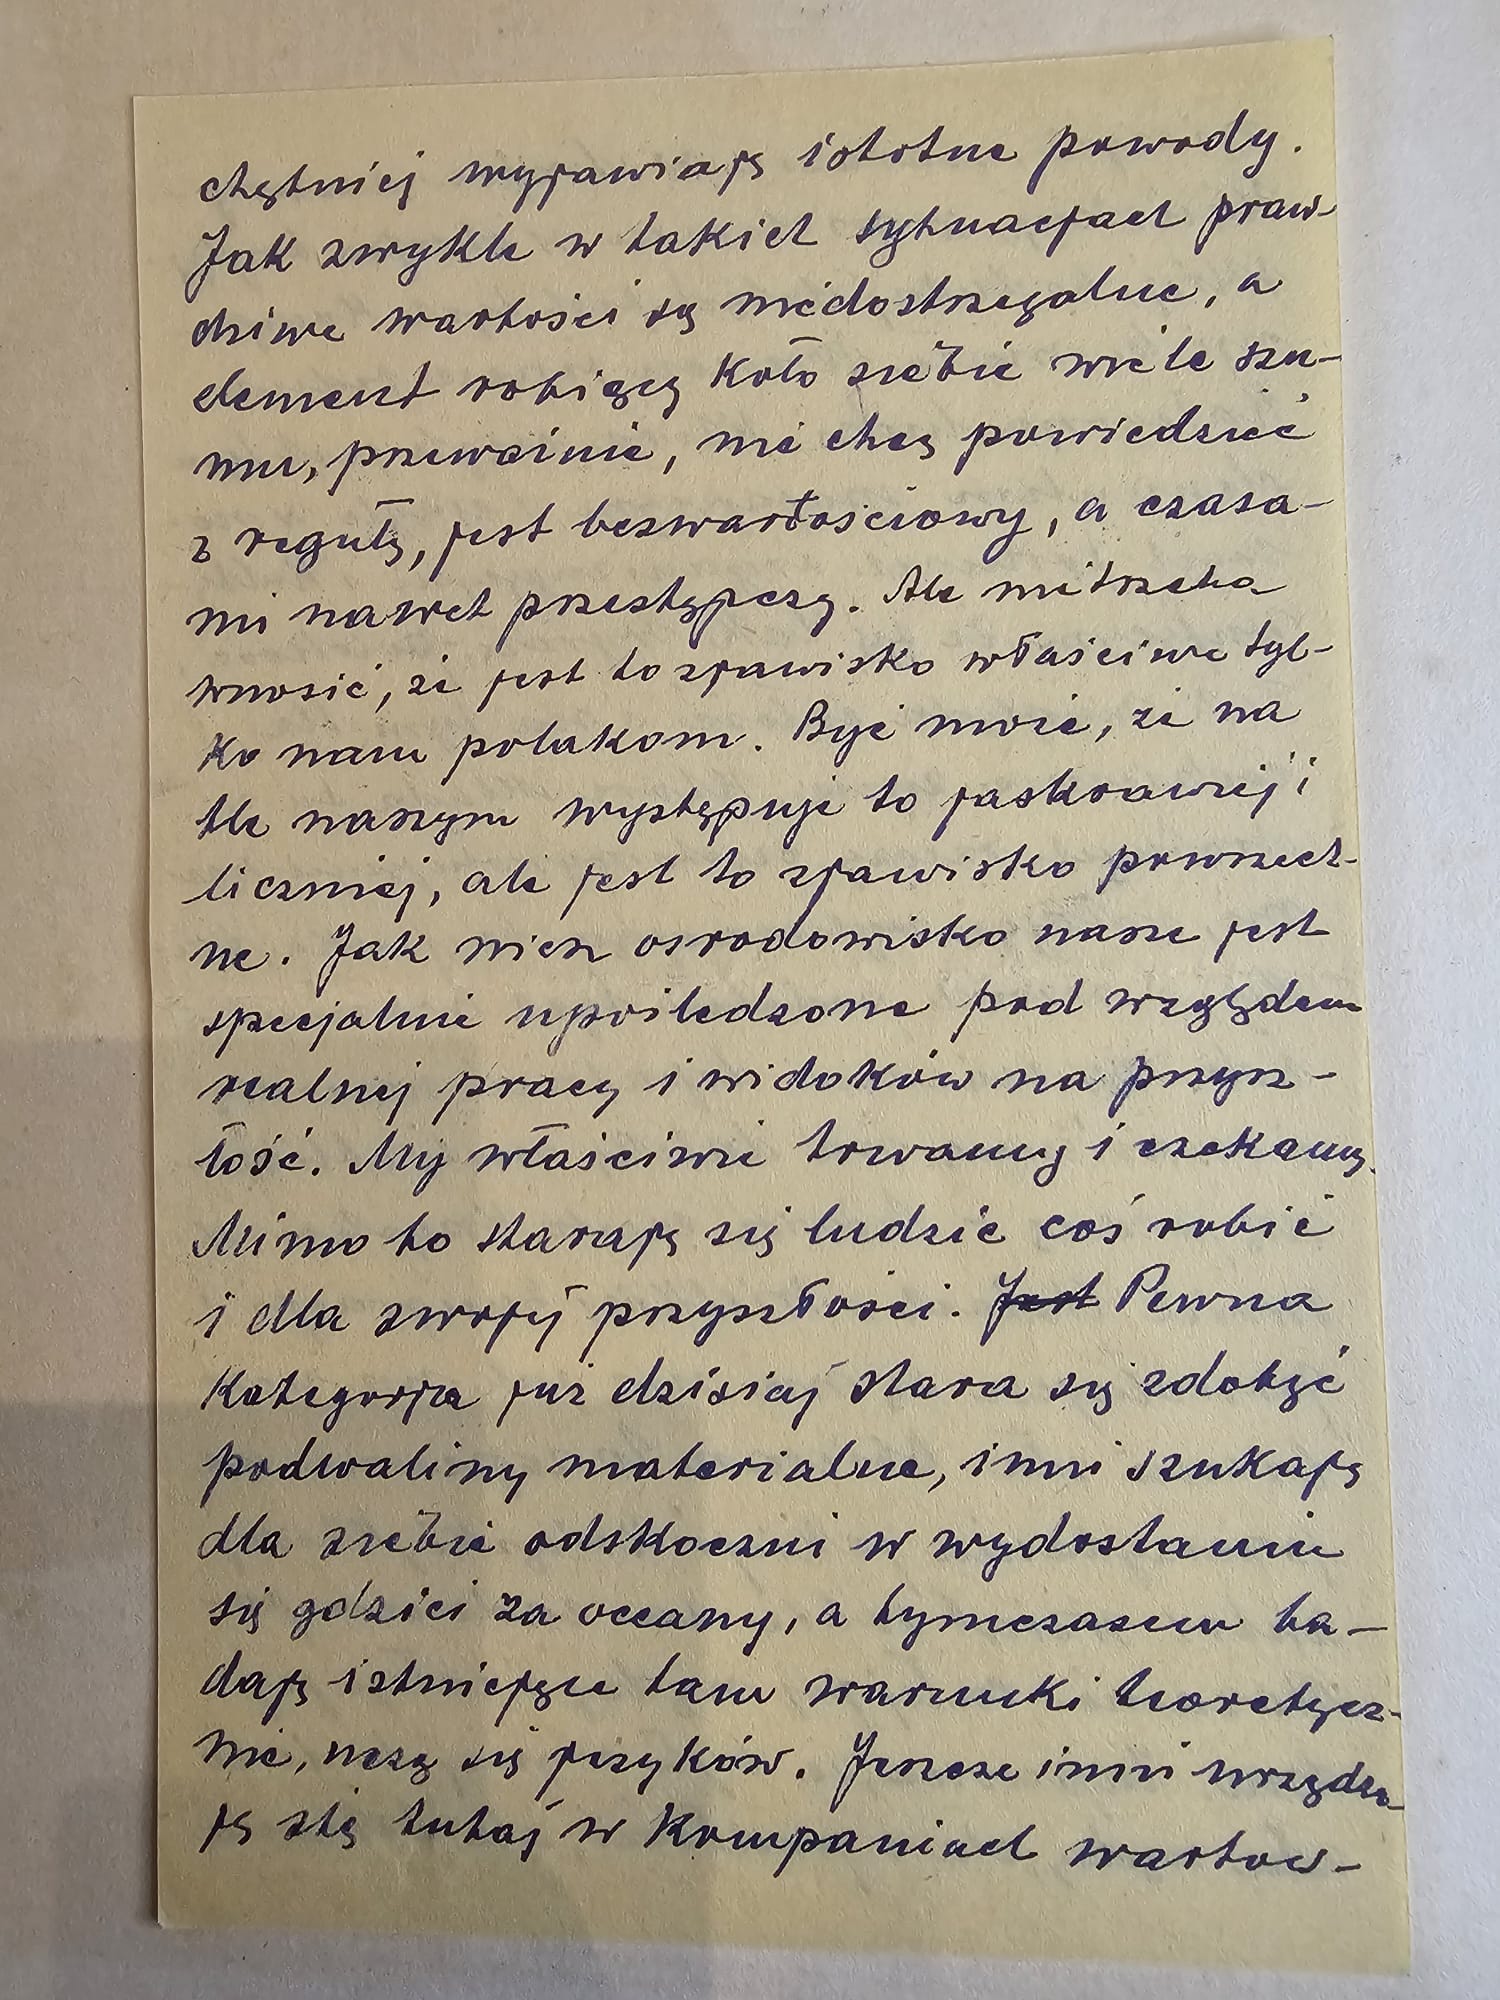 chętniej wyjawiają istotne powody.
Jak zwykle w takich sytuacjach praw-
dziwe wartości są niedostrzegalne, a
element robiący koło siebie wiele szu-
mu, przeważnie, nie chcę powiedzieć
z reguły, jest bezwartościowy, a czasa-
mi nawet przestępczy. Ale nie trzeba
wnosić, że jest to zjawisko właściwe tyl-
ko nam polakom. Być może, że na
tle naszym występuje to jaskrawiej i
liczniej, ale jest to zjawisko powszech-
ne. Jak wiesz osrodowisko nasze jest
specjalnie upośledzone pod względem
realnej pracy i widoków na przysz-
łość. My właściwie trwamy i czekamy.
Mimo to starają się ludzie coś robić
i dla swojej przyszłości. Jest Pewna
kategorja już dzisiaj stara się zdobyć
podwaliny materialne, inni szukają
dla siebie odskoczni w wydostaniu
się gdzieś za oceany, a tymczasem ba-
dają istniejące tam warunki teoretycz-
nie, uczą się języków. Jeszcze inni urządza-
ją się tutaj w kompaniach wartow-